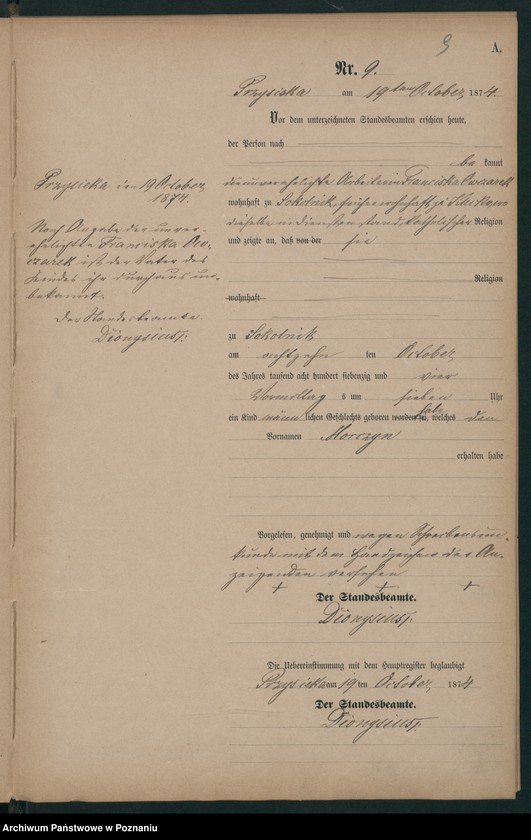 9
A.
Nr. 9.
Przysieka am 19ten October 1874.
Vor dem unterzeichneten Standesbeamten erschien heute,
der Person nach
be kannt
die unverehelichte Arbeiterin Franciska Owczarek
wohnhaft zu Sokolnik, früher wohnhaft zu
dieselbe in diensten stand, katholischer Religion
und zeigte an, daß von der sie
Religion
wohnhaft
zu Sokolnik
am achtzehn ten October
des Jahrs tausend acht hundert siebenzig und vier
Vormittag s um sieben Uhr
ein Kind männ lichen Geschlechts geboren worden sei, habe welches den
Vornamen Morczyn
erhalten habe
Vorgelesen, genehmigt und wegen Schreibensun-
kunde mit dem Handzeichen der An-
zeigenden versehen
+ + +
Der Standesbeamte.
Dionysius
Die Uebereinstimmung mit dem Hauptregister beglaubigt
Przysieka am 19 ten October 1874
Der Standesbeamte.
Dionysius
Przysieka den 19 October
1874.
Nach Angabe der unver-
ehelichten Franciska Ow-
czarek ist der Vater des
Kindes ihr durchaus un-
bekannt.
Der Standesbeamte
Dionysius
Archiwum Państwowe w Poznaniu